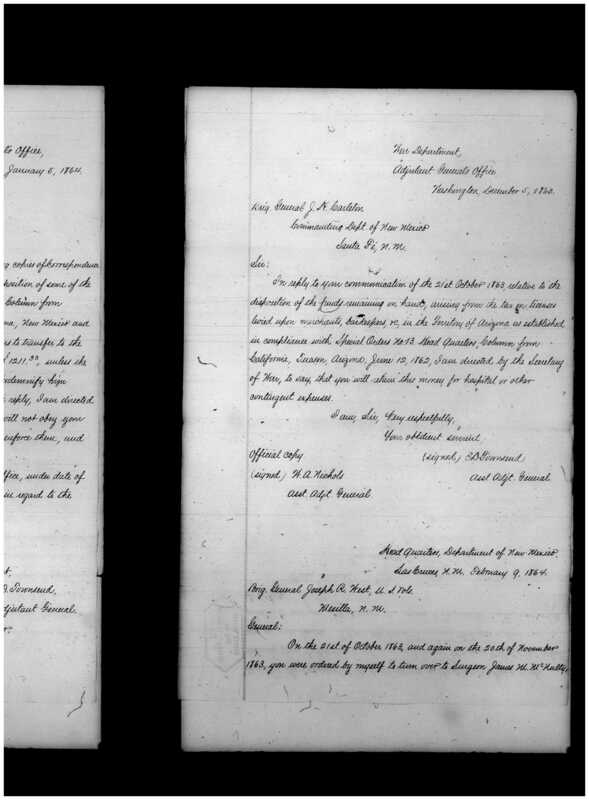 ts Office,
January 5, 1864.
copies of Correspondence
position of some of the
Column from
na, New Mexico and
us to transfer to the
1211.30, unless the
indemnify him
reply, I am directed
will not obey your
enforce them, and
ffice, under date of
in regard to the
t.
D. Townsend,
djutant General.
War Department,
Adjutant Generals Office
Washington, December 5, 1863.
Brig. General J. H. Carleton
Commanding Dept. of New Mexico
Santa Fé, N. M.
Sir:
In reply to your communication of the 21st October 1863, relative to the
disposition of the funds remaining on hand, arising from the tax on licenses
levied upon merchants, barkeepers, &c, in the Territory of Arizona as established
in compliance with Special Orders No 13. Head Quarters, Column from
California, Tucson, Arizona, June 12, 1862, I am directed by the Secretary
of War, to say, that you will retain this money for hospital or other
contingent expenses.
I am, Sir, Very respectfully,
Your obedient servant
Official copy
(signed) E D Townsend
(signed) W. A. Nichols
Asst Adjt. General
Asst Adjt General
Head Quarters, Department of New Mexico
Las Cruces, N. M. February 9, 1864.
Brig. General Joseph R. West, U. S. Vols.
Mesilla, N. M.
General:
On the 21st of October 1863, and again on the 20th of November
1863, you were ordered by myself to turn over to Surgeon James M. McNulty,